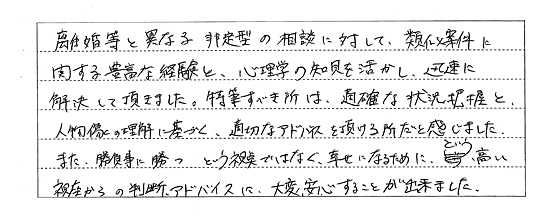 離婚等と異なる非定型の相談に対して、類似案件に
関する豊富な経験と、心理学の知見を活かし、迅速に
解決して頂きました。特筆すべき所は、適確な状況把握と、
人物像の理解に基づく、適切なアドバイスを頂ける所だと感じました。
また、勝負事に勝つという視点ではなく、幸せになるために、という高い
視座からの判断、アドバイスに、大変、安心することが出来ました。